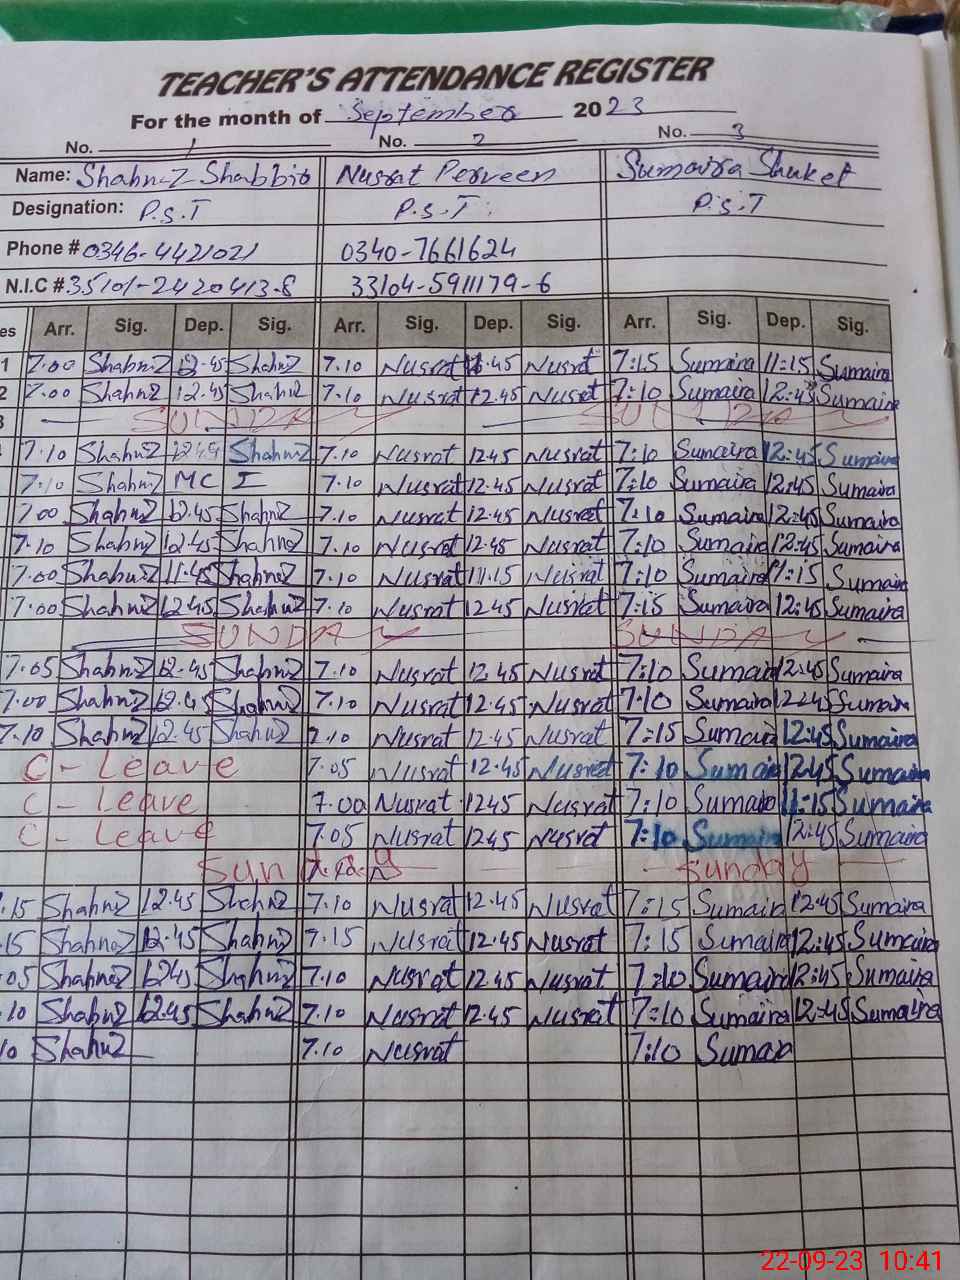 TEACHER'S ATTENDANCE REGISTER
For the month of September 2023
No. 1 No. 2 No. 3
Name: Shahnaz Shabbir Nusrat Perveen Sumaira Shuket
Designation: P.S.T P.S.T P.S.T
Phone # 0346-4421021 0340-7661624
N.I.C # 35101-2420413-8 33104-5911179-6
es Arr. Sig. Dep. Sig. Arr. Sig. Dep. Sig. Arr. Sig. Dep. Sig.
1 7.00 ShahnZ 12.45 ShahnZ 7.10 Nusrat 45 Nusrat 7:15 Sumaira 11:15 Sumaira
2 7.00 ShahnZ 12.45 ShahnZ 7.10 Nusrat 12.45 Nusrat 7:10 Sumaira 12:45 Sumaira
3 SUNDAY SUNDAY
7.10 ShahnZ 12.45 ShahnZ 7.10 Nusrat 12.45 Nusrat 7:10 Sumaira 12:45 Sumaira
7:10 ShahnZ MC I 7.10 Nusrat 12.45 Nusrat 7:10 Sumaira 12:45 Sumaira
7.00 ShahnZ 12.45 ShahnZ 7.10 Nusrat 12.45 Nusrat 7:10 Sumaira 12:45 Sumaira
7.10 ShahnZ 12.45 ShahnZ 7.10 Nusrat 12.45 Nusrat 7:10 Sumaira 12:45 Sumaira
7.00 ShahnZ 11.45 ShahnZ 7.10 Nusrat 11.15 Nusrat 7:10 Sumaira 11:15 Sumaira
7.00 ShahnZ 12.45 ShahnZ 7.10 Nusrat 12.45 Nusrat 7:15 Sumaira 12:45 Sumaira
SUNDAY SUNDAY
7.05 ShahnZ 12.45 ShahnZ 7.10 Nusrat 12.45 Nusrat 7:10 Sumaira 12:45 Sumaira
7.00 ShahnZ 12.45 ShahnZ 7.10 Nusrat 12.45 Nusrat 7:10 Sumaira 12:45 Sumaira
7.10 ShahnZ 12.45 ShahnZ 7.10 Nusrat 12.45 Nusrat 7:15 Sumaira 12:45 Sumaira
C - Leave 7.05 Nusrat 12.45 Nusrat 7:10 Sumaira 12:45 Sumaira
C - Leave 7.00 Nusrat 12.45 Nusrat 7:10 Sumaira 11:15 Sumaira
C - Leave 7.05 Nusrat 12.45 Nusrat 7:10 Sumaira 12:45 Sumaira
Sunday Sunday
.15 ShahnZ 12.45 ShahnZ 7.10 Nusrat 12.45 Nusrat 7:15 Sumaira 12:45 Sumaira
.15 ShahnZ 12.45 ShahnZ 7.15 Nusrat 12.45 Nusrat 7:15 Sumaira 12:45 Sumaira
.05 ShahnZ 12.45 ShahnZ 7.10 Nusrat 12.45 Nusrat 7:10 Sumaira 12:45 Sumaira
.10 ShahnZ 12.45 ShahnZ 7.10 Nusrat 12.45 Nusrat 7:10 Sumaira 12:45 Sumaira
10 ShahnZ 7.10 Nusrat 7:10 Sumaira
22-09-23 10:41